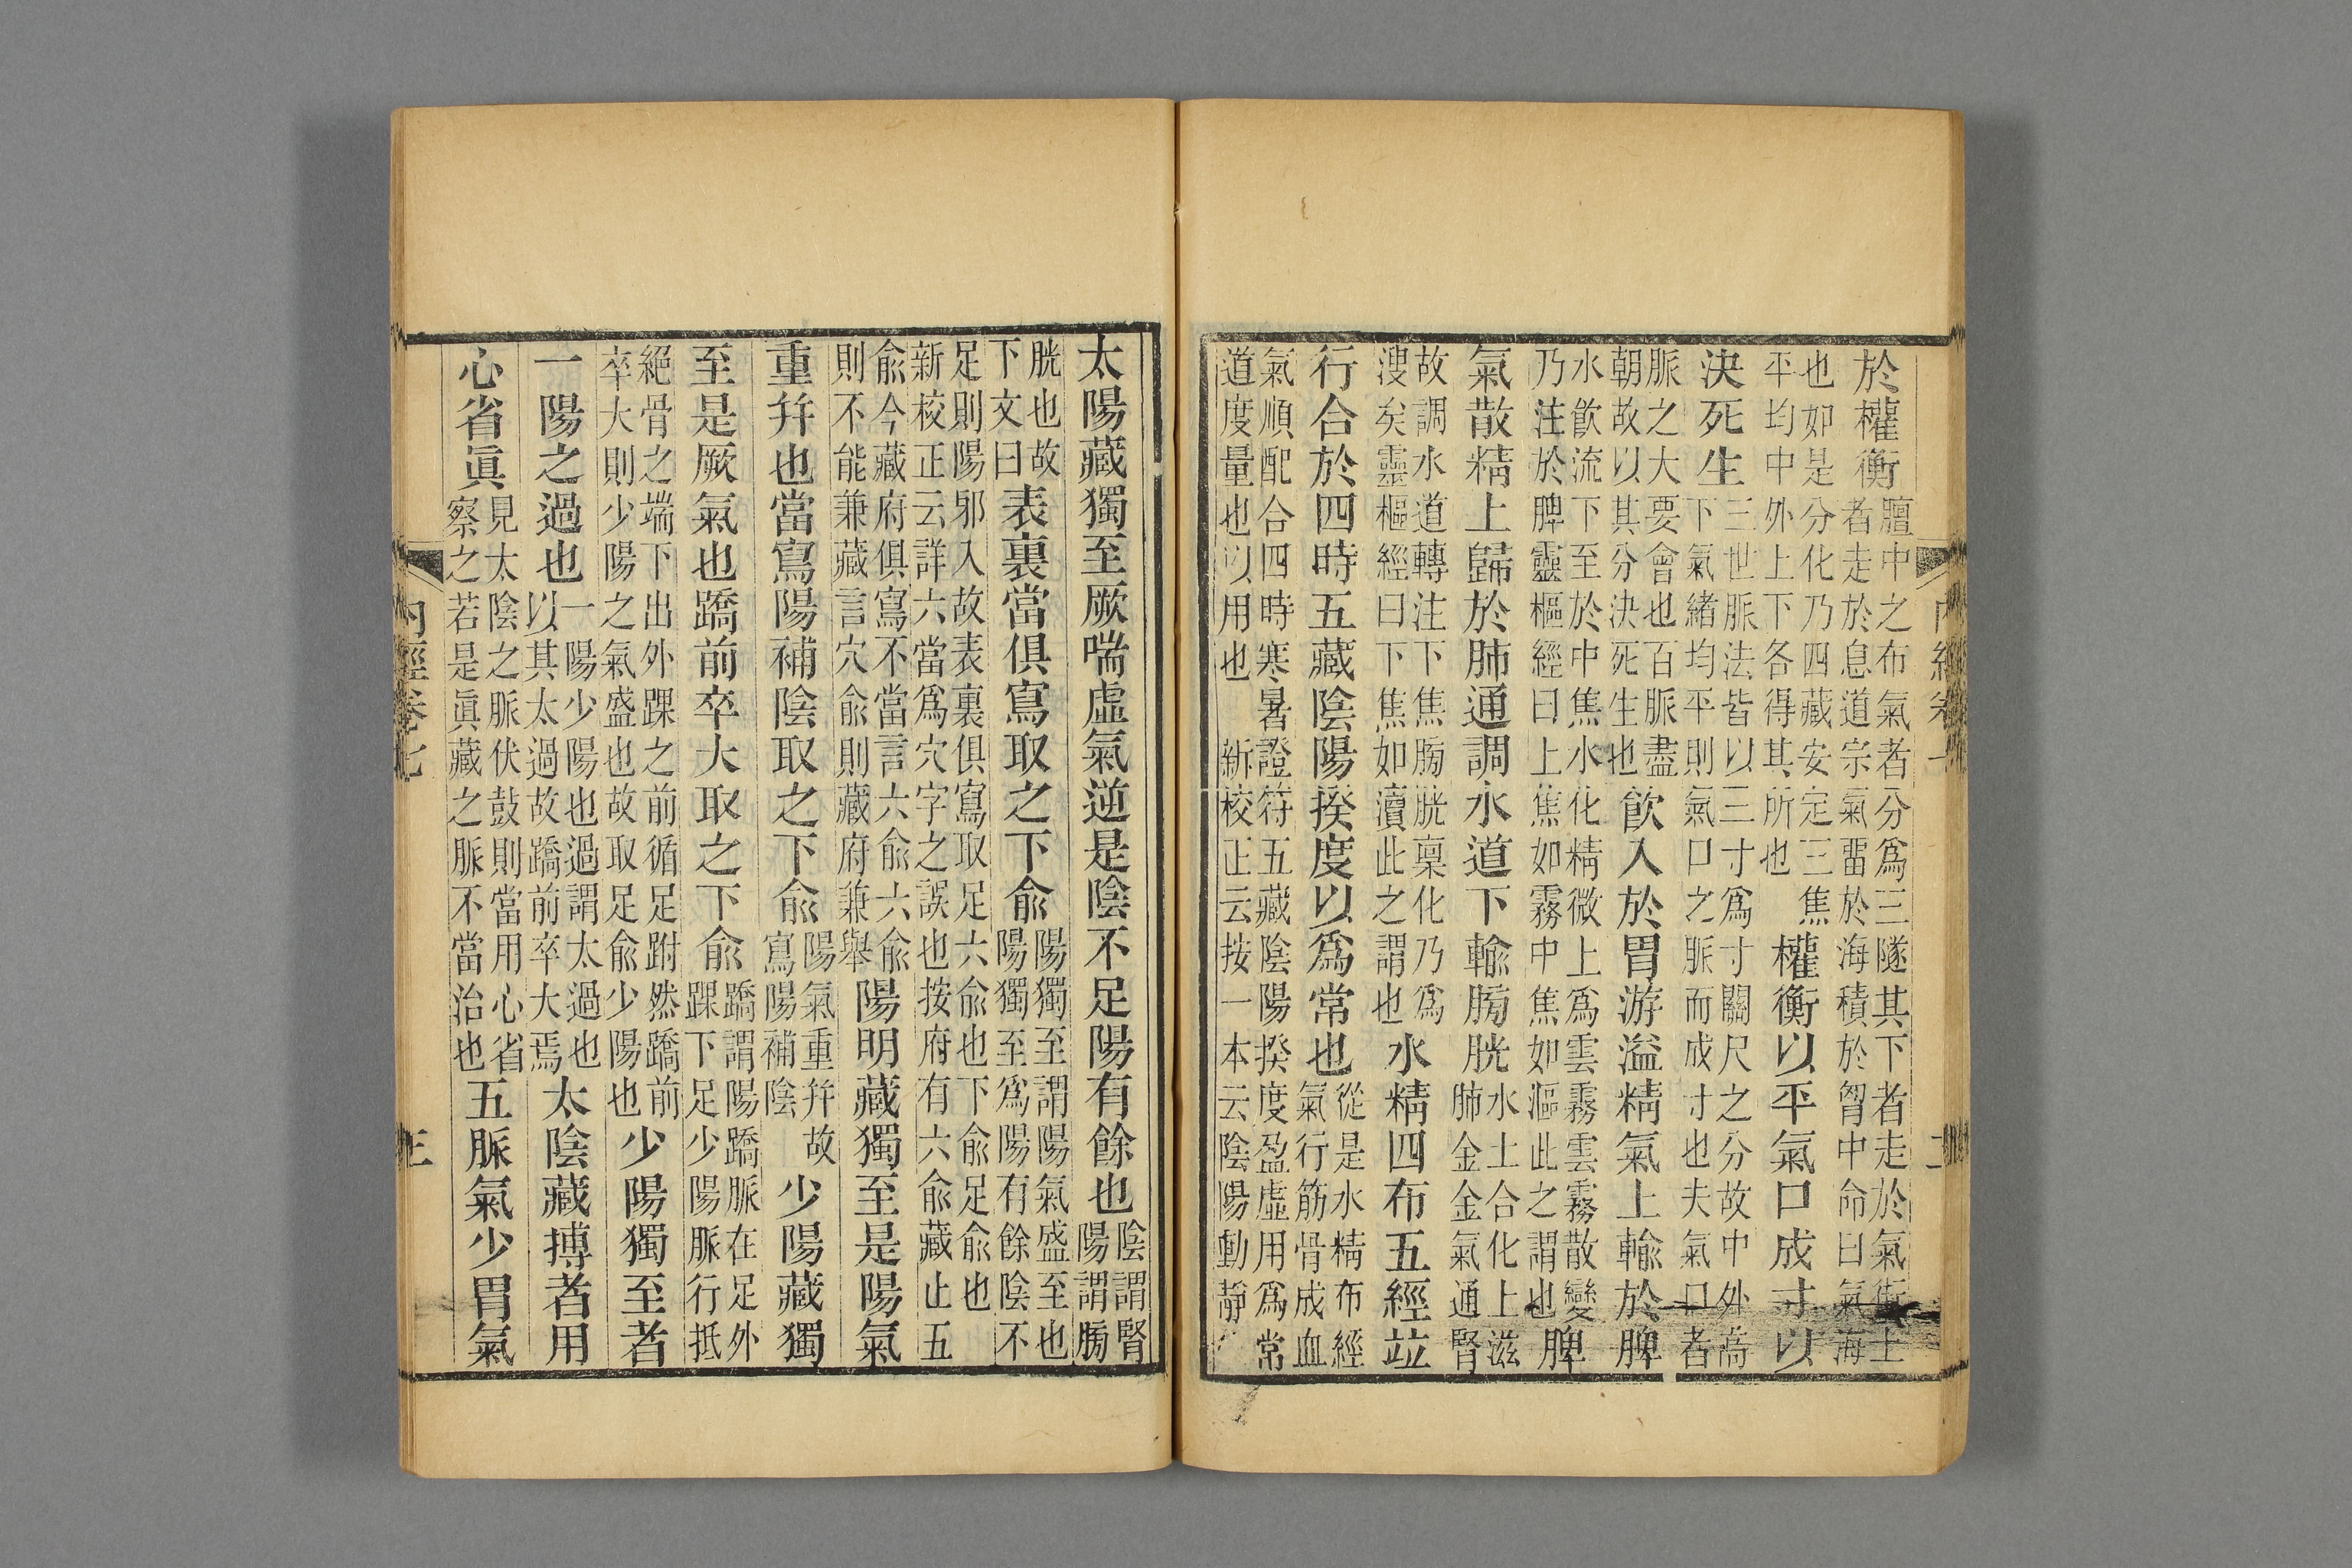 於權衡
膻中之布氣者分爲三隧其下者走於氣街上
者走於息道宗氣畱於海積於胷中命曰氣海
也如是分化乃四藏安定三焦
平均中外上下各得其所也
權衡以平氣口成寸以
決死生
三世脈法皆以三寸爲寸關尺之分故中外高
下氣緒均平則氣口之脈而成寸也夫氣口者
脈之大要會也百脈盡
朝故以其分決死生也
飲入於胃游溢精氣上輸於脾
水飲流下至於中焦水化精微上爲雲霧雲霧散變
乃注於脾靈樞經曰上焦如霧中焦如漚此之謂也
脾
氣散精上歸於肺通調水道下輸膀胱
水土合化上滋
肺金金氣通腎
故調水道轉注下焦膀胱稟化乃爲
溲矣靈樞經曰下焦如瀆此之謂也
水精四布五經竝
行合於四時五藏陰陽揆度以爲常也
從是水精布經
氣行筋骨成血
氣順配合四時寒暑證符五藏陰陽揆度盈虛用爲常
道度量也以用也 新校正云按一本云陰陽動靜
太陽藏獨至厥喘虛氣逆是陰不足陽有餘也
陰謂腎
陽謂膀
胱也故
下文曰
表裏當俱寫取之下俞
陽獨至謂陽氣盛至也
陽獨至爲陽有餘陰不
足則陽邪入故表裏俱寫取足六俞也下俞足俞也
新校正云詳六當爲穴字之誤也按府有六俞藏止五
俞今藏府俱寫不當言六俞六俞
則不能兼藏言穴俞則藏府兼舉
陽明藏獨至是陽氣
重幷也當寫陽補陰取之下俞
陽氣重幷故
寫陽補陰
少陽藏獨
至是厥氣也蹻前卒大取之下俞
蹻謂陽蹻脈在足外
踝下足少陽脈行抵
絕骨之端下出外踝之前循足跗然蹻前
卒大則少陽之氣盛也故取足俞少陽也
少陽獨至者
一陽之過也
一陽少陽也過謂太過也
以其太過故蹻前卒大焉
太陰藏搏者用
心省眞
見太陰之脈伏鼓則當用心省
察之若是眞藏之脈不當治也
五脈氣少胃氣
內經卷七
三